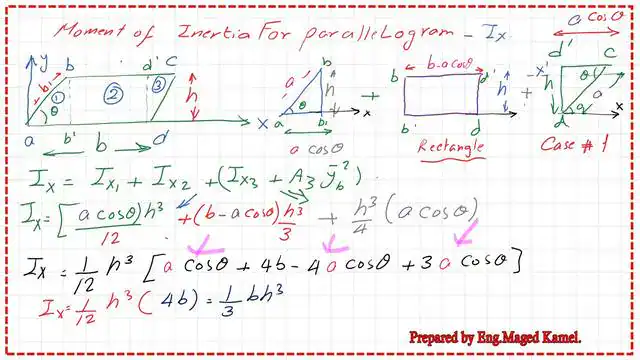 Moment of Inertia For parallelogram - Ix
a cosθ
y b d' C b d' C
b-acosθ
a 1 2 3 h a h + b d' h + -x' h θ
a θ b' b d x a θ b1 x b' d A a x
a cosθ Rectangle Case # 1
Ix = Ix1 + Ix2 + (Ix3 + A3 ȳb²)
Ix = [a cosθ) h³/12 + (b-a cosθ) h³/3 + h³/4 (a cosθ)
Ix = 1/12 h³ [a cosθ + 4b - 4 a cosθ + 3 a cosθ]
Ix = 1/12 h³ (4b) = 1/3 bh³
Prepared by Eng.Maged Kamel.